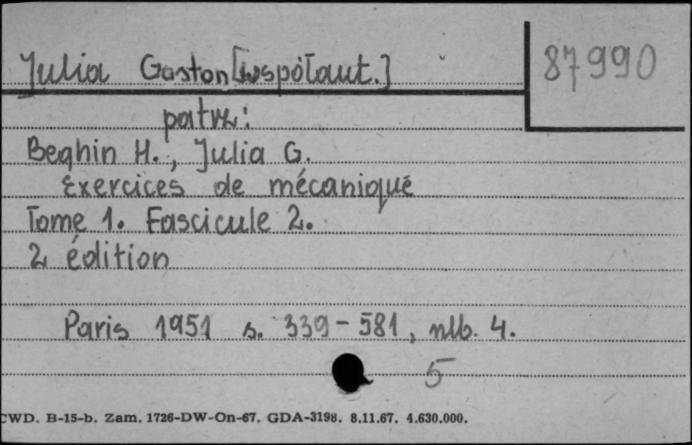 Julia Gaston [współaut.] 87990
patrz:
Beghin H., Julia G.
Exercices de mécanique
Tome 1. Fascicule 2.
2 édition
Paris 1951 s. 339-581, nlb. 4.
5
CWD. B-15-b. Zam. 1726-DW-On-67. GDA-3198. 8.11.67. 4.630.000.